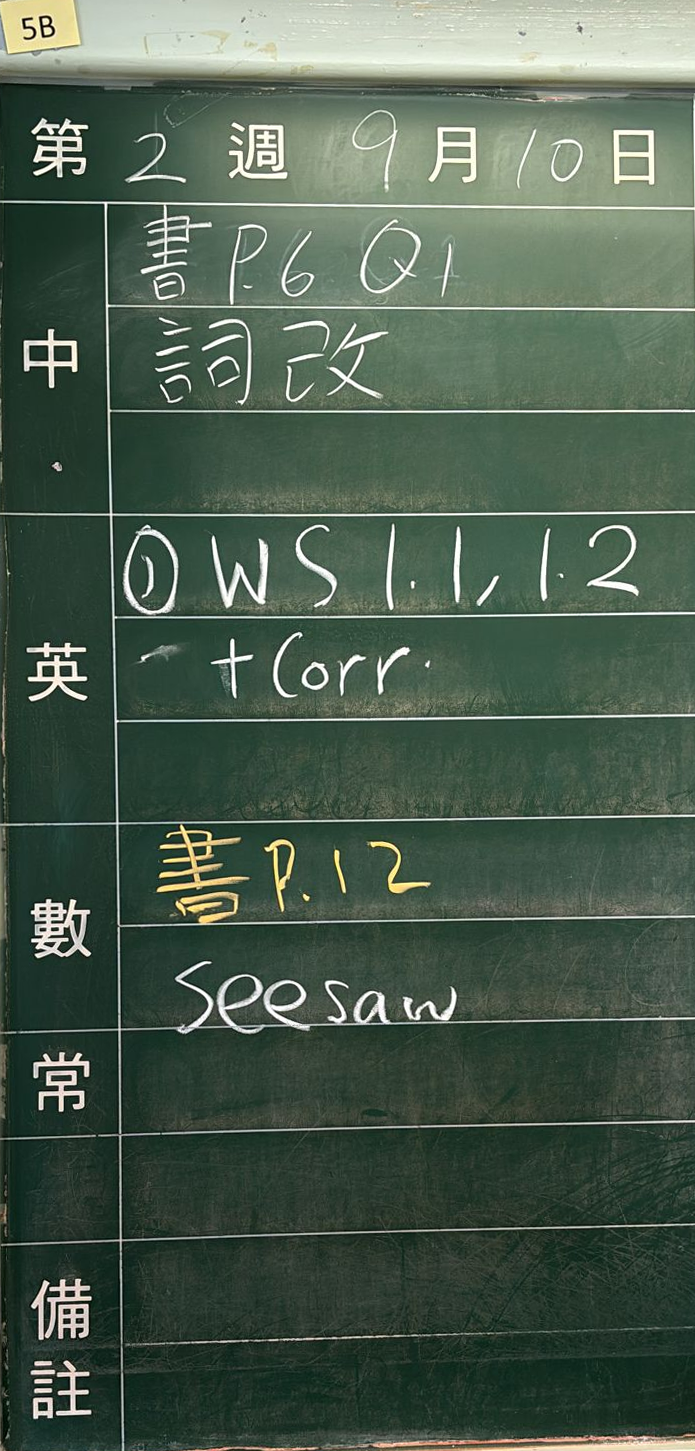 5B
第 2 週 9 月 10 日
中
書 P.6 Q1
詞改
英
① WS 1.1, 1.2
+ Corr.
數
書 P.12
seesaw
常
備註